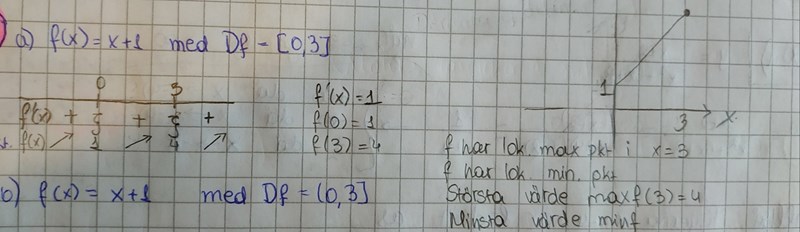 a) f(x) = x+1 med Df = [0,3]
0 3
f'(x) + + +
f(x) ↗ 1 ↗ 4 ↗
f'(x) = 1
f(0) = 1
f(3) = 4
1
3 x
f har lok. max pkt i x=3
f har lok. min. pkt
Största värde max f(3) = 4
Minsta värde min f
b) f(x) = x+1 med Df = (0,3]